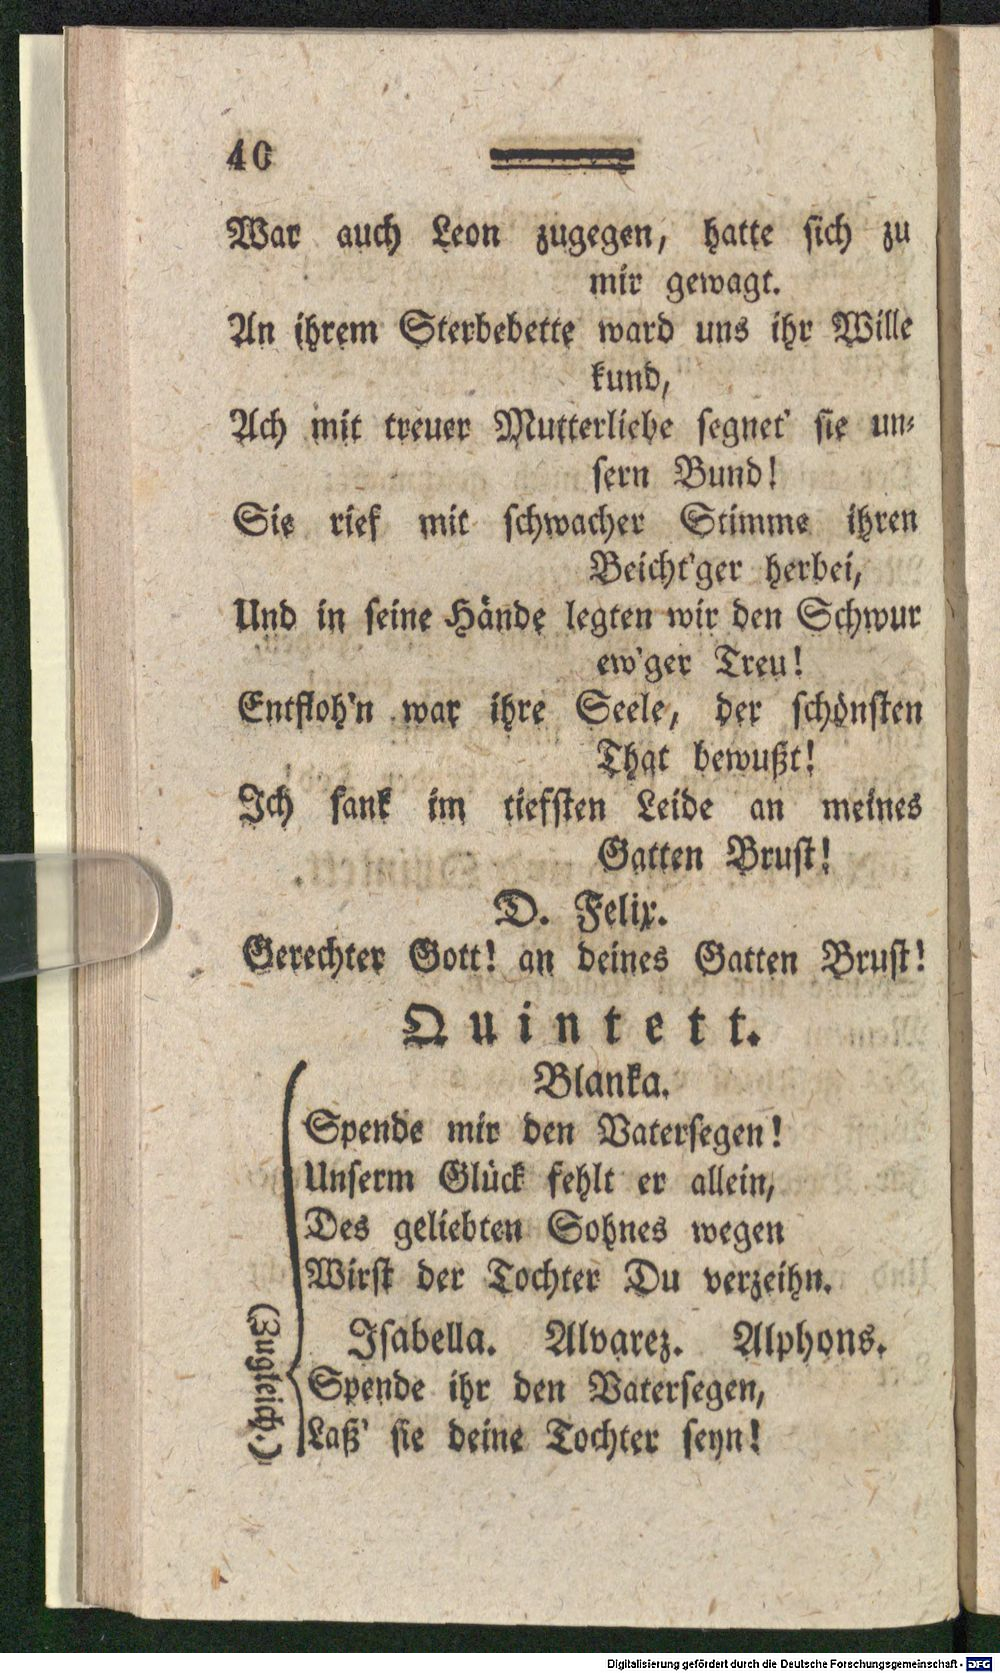 40
War auch Leon zugegen, hatte sich zu
mir gewagt.
An ihrem Sterbebette ward uns ihr Wille
kund,
Ach mit treuer Mutterliebe segnet' sie un-
sern Bund!
Sie rief mit schwacher Stimme ihren
Beicht'ger herbei,
Und in seine Hände legten wir den Schwur
ew'ger Treu!
Entfloh'n war ihre Seele, der schönsten
That bewußt!
Ich sank im tiefsten Leide an meines
Gatten Brust!
D. Felix.
Gerechter Gott! an deines Gatten Brust!
Quintett.
Blanka.
Spende mir den Vatersegen!
Unserm Glück fehlt er allein,
Des geliebten Sohnes wegen
Wirst der Tochter Du verzeihn.
(Zugleich.)
Isabella. Alvarez. Alphons.
Spende ihr den Vatersegen,
Laß' sie deine Tochter seyn!
Digitalisierung gefördert durch die Deutsche Forschungsgemeinschaft - DFG